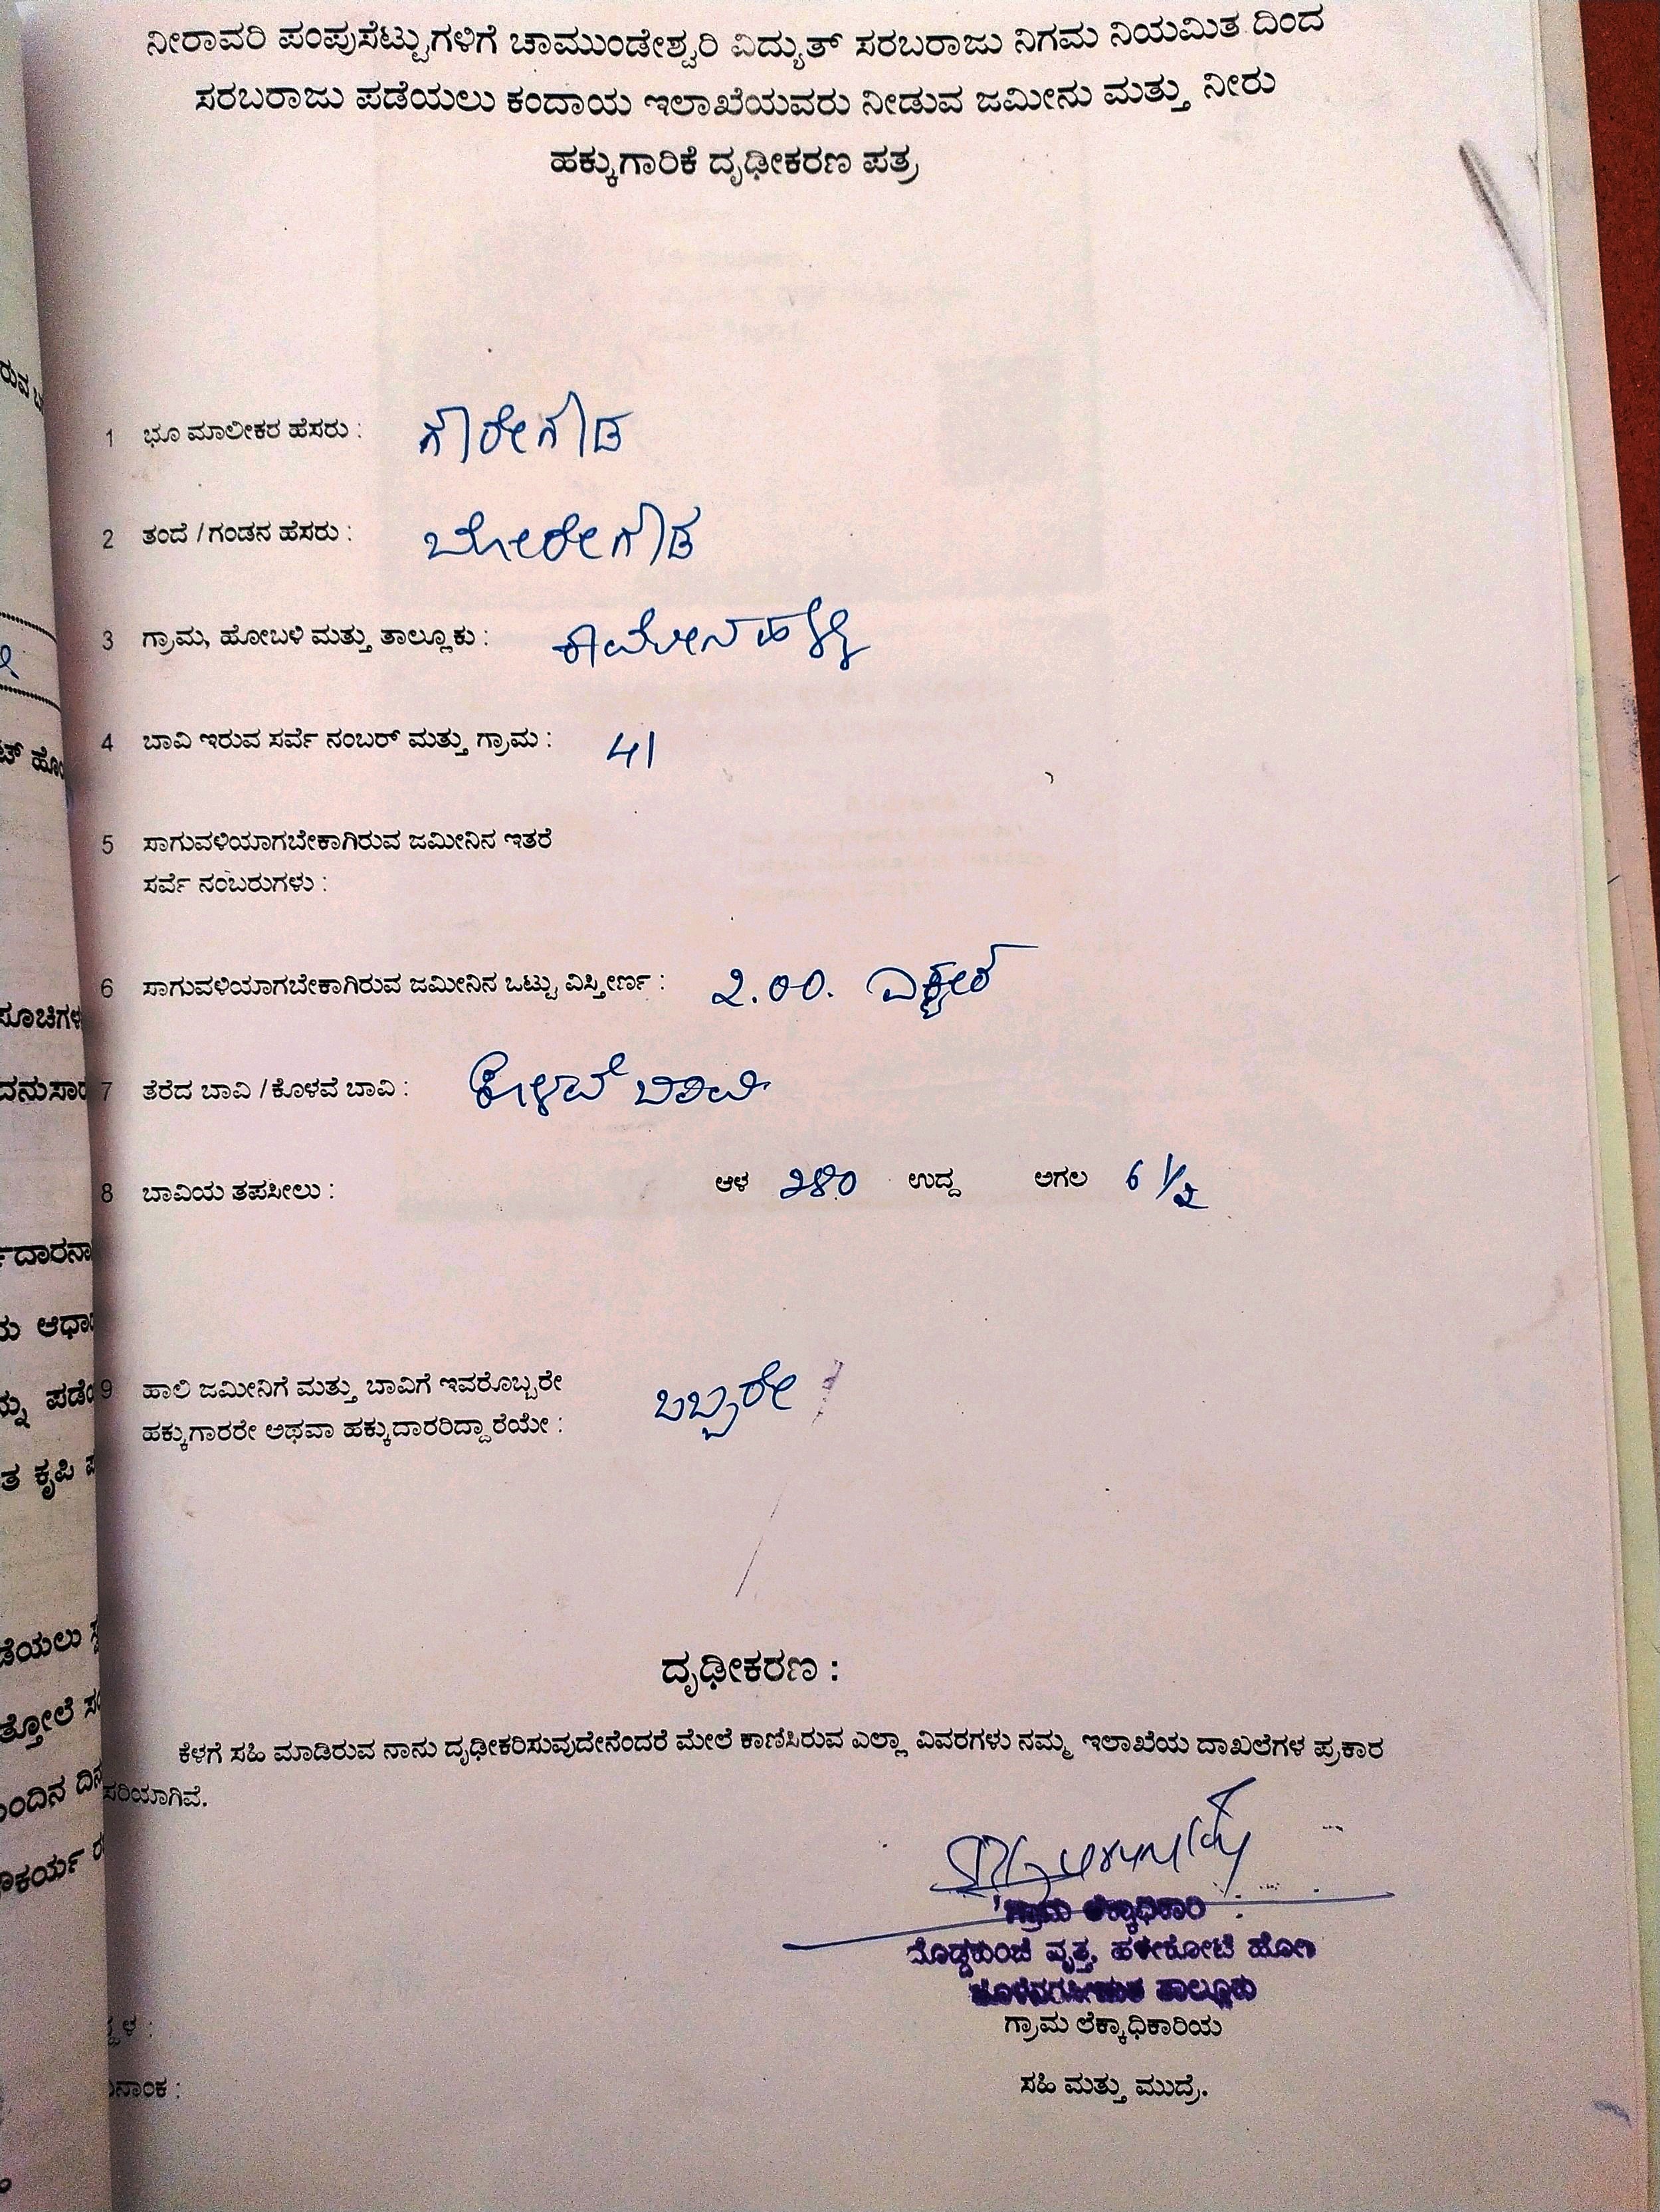 ನೀರಾವರಿ ಪಂಪುಸೆಟ್ಟುಗಳಿಗೆ ಚಾಮುಂಡೇಶ್ವರಿ ವಿದ್ಯುತ್ ಸರಬರಾಜು ನಿಗಮ ನಿಯಮಿತ ದಿಂದ
ಸರಬರಾಜು ಪಡೆಯಲು ಕಂದಾಯ ಇಲಾಖೆಯವರು ನೀಡುವ ಜಮೀನು ಮತ್ತು ನೀರು
ಹಕ್ಕುಗಾರಿಕೆ ದೃಢೀಕರಣ ಪತ್ರ
1 ಭೂ ಮಾಲೀಕರ ಹೆಸರು : ಗೌರೇಗೌಡ
2 ತಂದೆ / ಗಂಡನ ಹೆಸರು : ಬೋರೇಗೌಡ
3 ಗ್ರಾಮ, ಹೋಬಳಿ ಮತ್ತು ತಾಲ್ಲೂಕು :
4 ಬಾವಿ ಇರುವ ಸರ್ವೆ ನಂಬರ್ ಮತ್ತು ಗ್ರಾಮ : 41
5 ಸಾಗುವಳಿಯಾಗಬೇಕಾಗಿರುವ ಜಮೀನಿನ ಇತರೆ
ಸರ್ವೆ ನಂಬರುಗಳು :
6 ಸಾಗುವಳಿಯಾಗಬೇಕಾಗಿರುವ ಜಮೀನಿನ ಒಟ್ಟು ವಿಸ್ತೀರ್ಣ : 2.00. ಎಕ್ಕರೆ
7 ತೆರೆದ ಬಾವಿ / ಕೊಳವೆ ಬಾವಿ : ಕೊಳವೆ ಬಾವಿ
8 ಬಾವಿಯ ತಪಸೀಲು : ಆಳ ಉದ್ದ ಅಗಲ 6 1/2
9 ಹಾಲಿ ಜಮೀನಿಗೆ ಮತ್ತು ಬಾವಿಗೆ ಇವರೊಬ್ಬರೇ
ಹಕ್ಕುಗಾರರೇ ಅಥವಾ ಹಕ್ಕುದಾರರಿದ್ದಾರೆಯೇ : ಒಬ್ಬರೇ
ದೃಢೀಕರಣ :
ಕೆಳಗೆ ಸಹಿ ಮಾಡಿರುವ ನಾನು ದೃಢೀಕರಿಸುವುದೇನೆಂದರೆ ಮೇಲೆ ಕಾಣಿಸಿರುವ ಎಲ್ಲಾ ವಿವರಗಳು ನಮ್ಮ ಇಲಾಖೆಯ ದಾಖಲೆಗಳ ಪ್ರಕಾರ
ಸರಿಯಾಗಿವೆ.
ಗ್ರಾಮ ಲೆಕ್ಕಾಧಿಕಾರಿ
ವೃತ್ತ, ಹಳೇಕೋಟೆ ಹೋಬಳಿ
ಹೊಳೆನರಸೀಪುರ ತಾಲ್ಲೂಕು
ಗ್ರಾಮ ಲೆಕ್ಕಾಧಿಕಾರಿಯ
ಸಹಿ ಮತ್ತು ಮುದ್ರೆ.